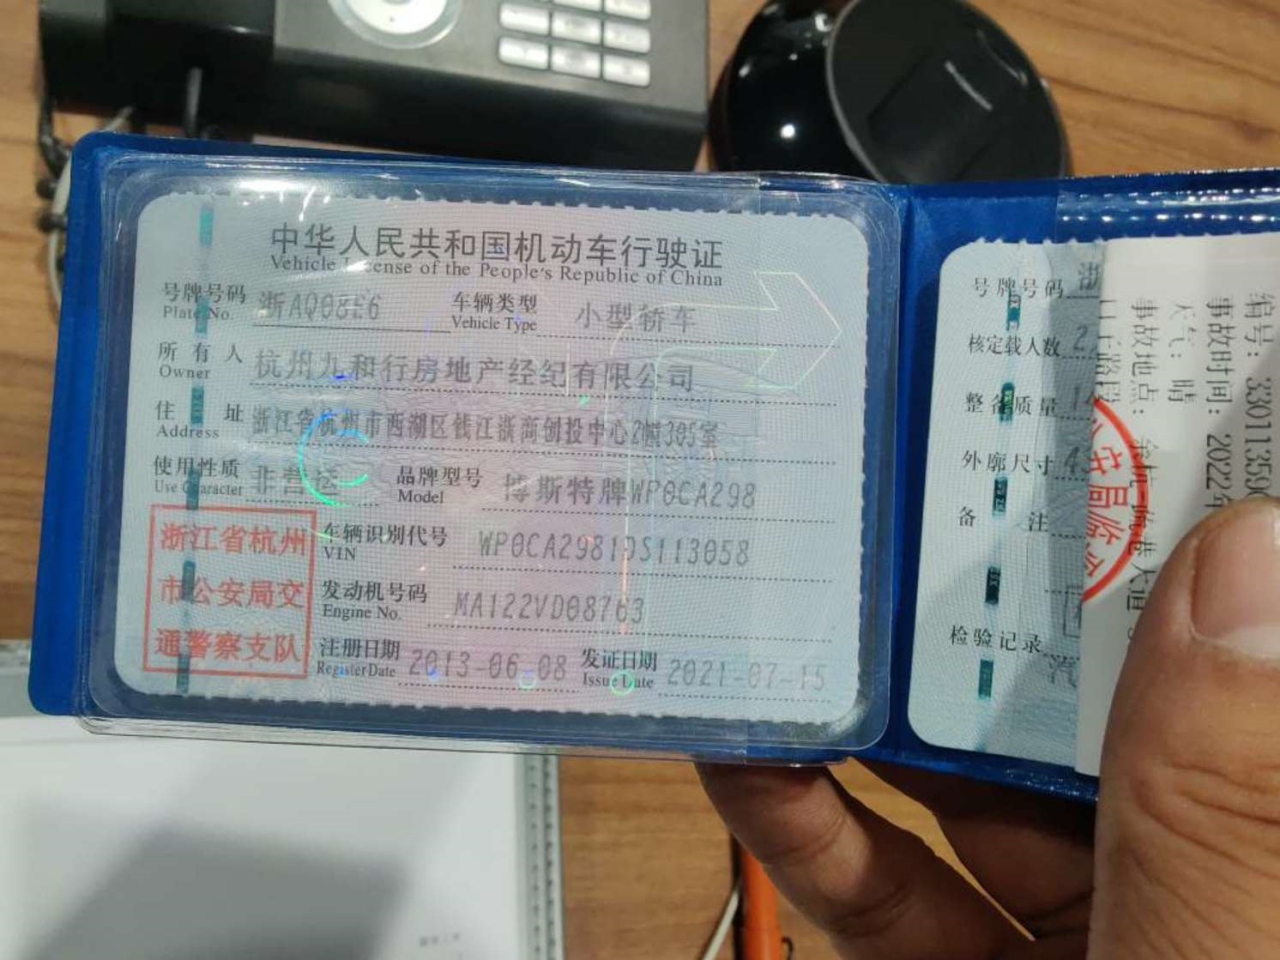 中华人民共和国机动车行驶证
Vehicle License of the People's Republic of China
号牌号码 浙AQ08E6 车辆类型 小型轿车
Plate No. Vehicle Type
所有人 杭州九和行房地产经纪有限公司
Owner
住址 浙江省杭州市西湖区钱江浙商创投中心2幢305室
Address
使用性质 非营运 品牌型号 博斯特牌WP0CA298
Use Character Model
浙江省杭州
市公安局交
通警察支队
车辆识别代号 WP0CA2981DS113058
VIN
发动机号码 MA122VD08763
Engine No.
注册日期 2013-06-08 发证日期 2021-07-15
Register Date Issue Date
号牌号码 浙
核定载人数 2
整备质量 1
外廓尺寸 4
备注
检验记录
编号: 33011359
事故时间: 2022年
天气: 晴
事故地点: